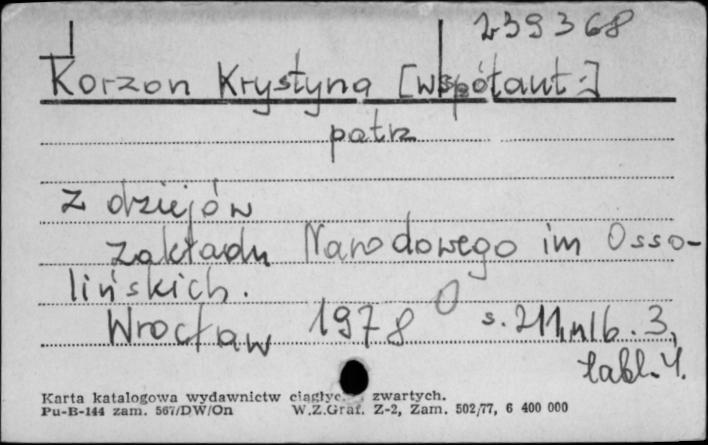 239368
Korzon Krystyna [współaut.]
patrz
Z dziejów
Zakładu Narodowego im Osso-
lińskich.
Wrocław 1978 s. 211, nlb. 3,
tabl. 4.
Karta katalogowa wydawnictw ciągłyc zwartych.
Pu-B-144 zam. 567/DW/On W.Z.Graf. Z-2, Zam. 502/77, 6 400 000